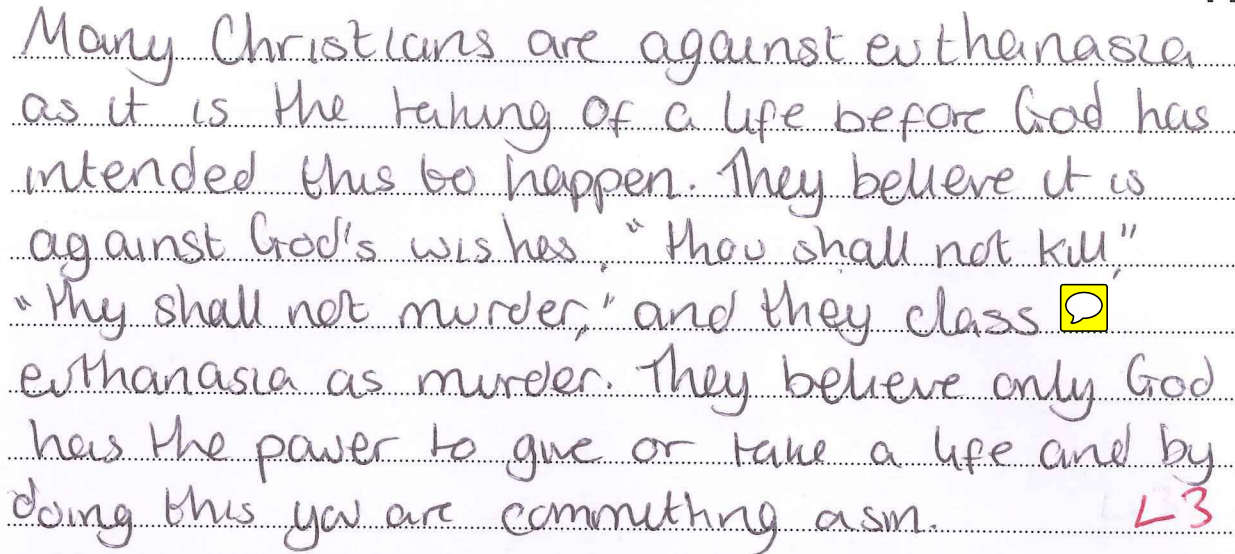 Many Christians are against euthanasia
as it is the taking of a life before God has
intended this to happen. They believe it is
against God's wishes, "thou shall not kill,"
"thy shall not murder," and they class
euthanasia as murder. They believe only God
has the power to give or take a life and by
doing this you are committing a sin. L3